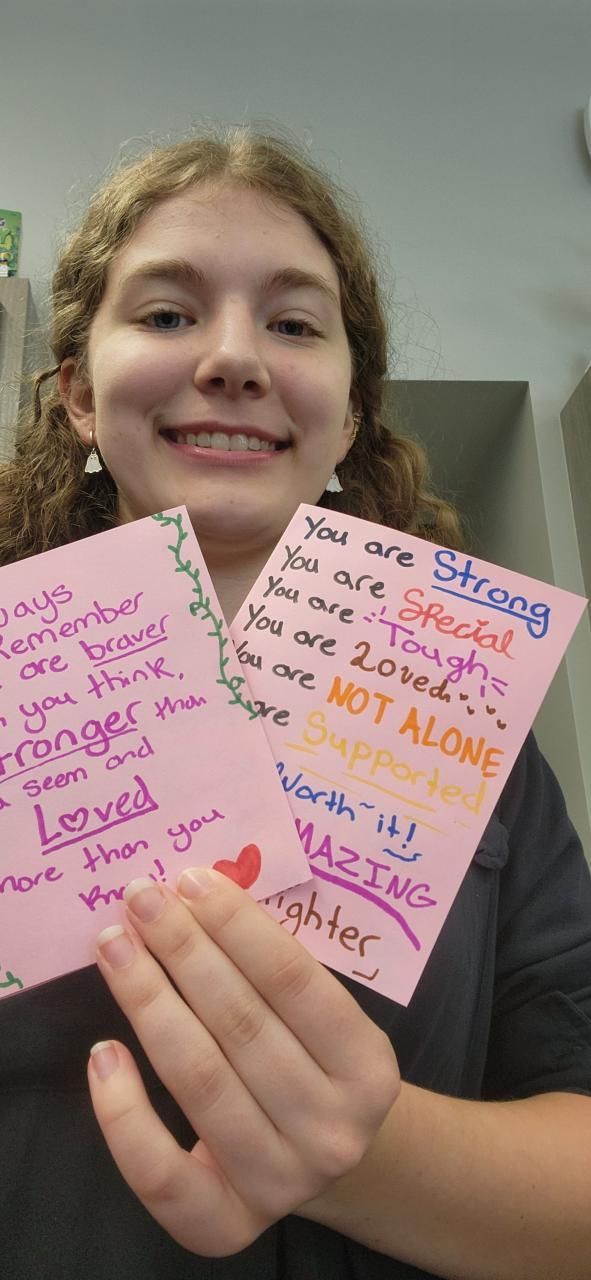 Remember
are braver
you think,
stronger than
seen and
Loved
more than you
You are Strong
You are Special
You are Tough
You are Loved
You are NOT ALONE
are Supported
Worth it!
AMAZING